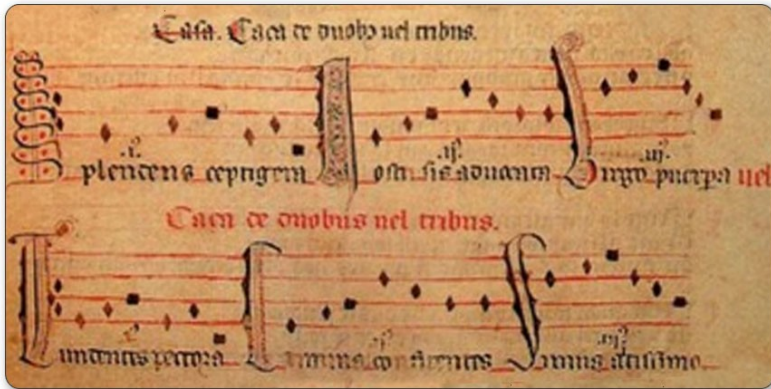 Caça. Caça de duobus uel tribus.
.i. .ij. .iij.
Splendens ceptigera Nostris sis aduocata Virgo puerpera uel
Caça de duobus uel tribus.
.i. .ij. .iij.
Tundentes pectora Crimina confitentes Simus altissimo